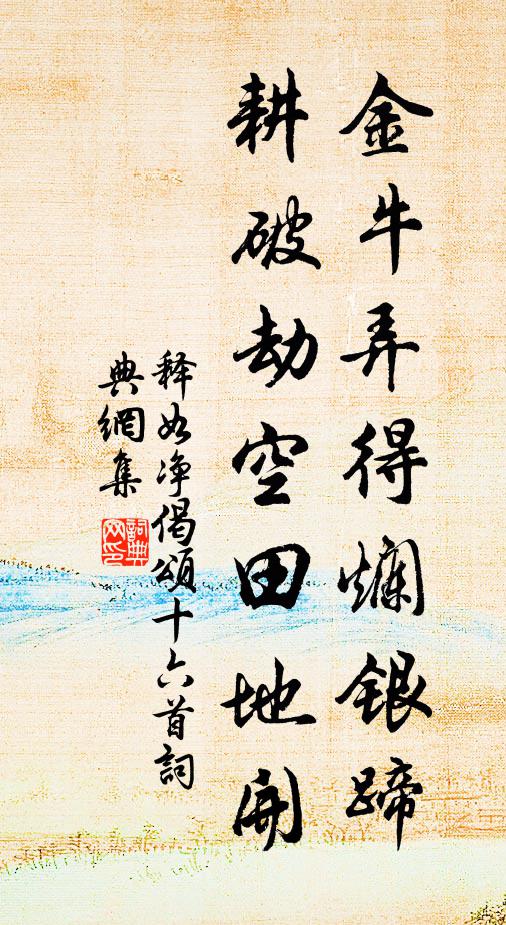 金牛弄得烂银蹄
耕破劫空田地开
释如净偈颂十六首词
典網集
詞典網印